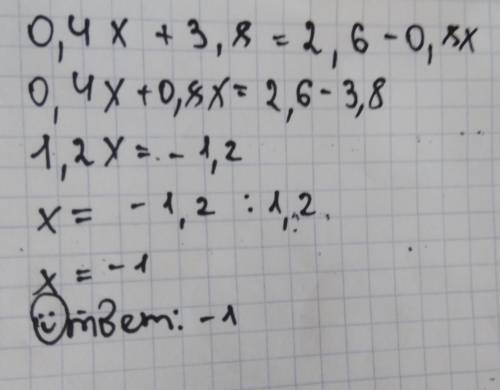 0,4x + 3,8 = 2,6 - 0,8x
0,4x + 0,8x = 2,6 - 3,8
1,2x = - 1,2
x = - 1,2 : 1,2
x = -1
Ответ: -1